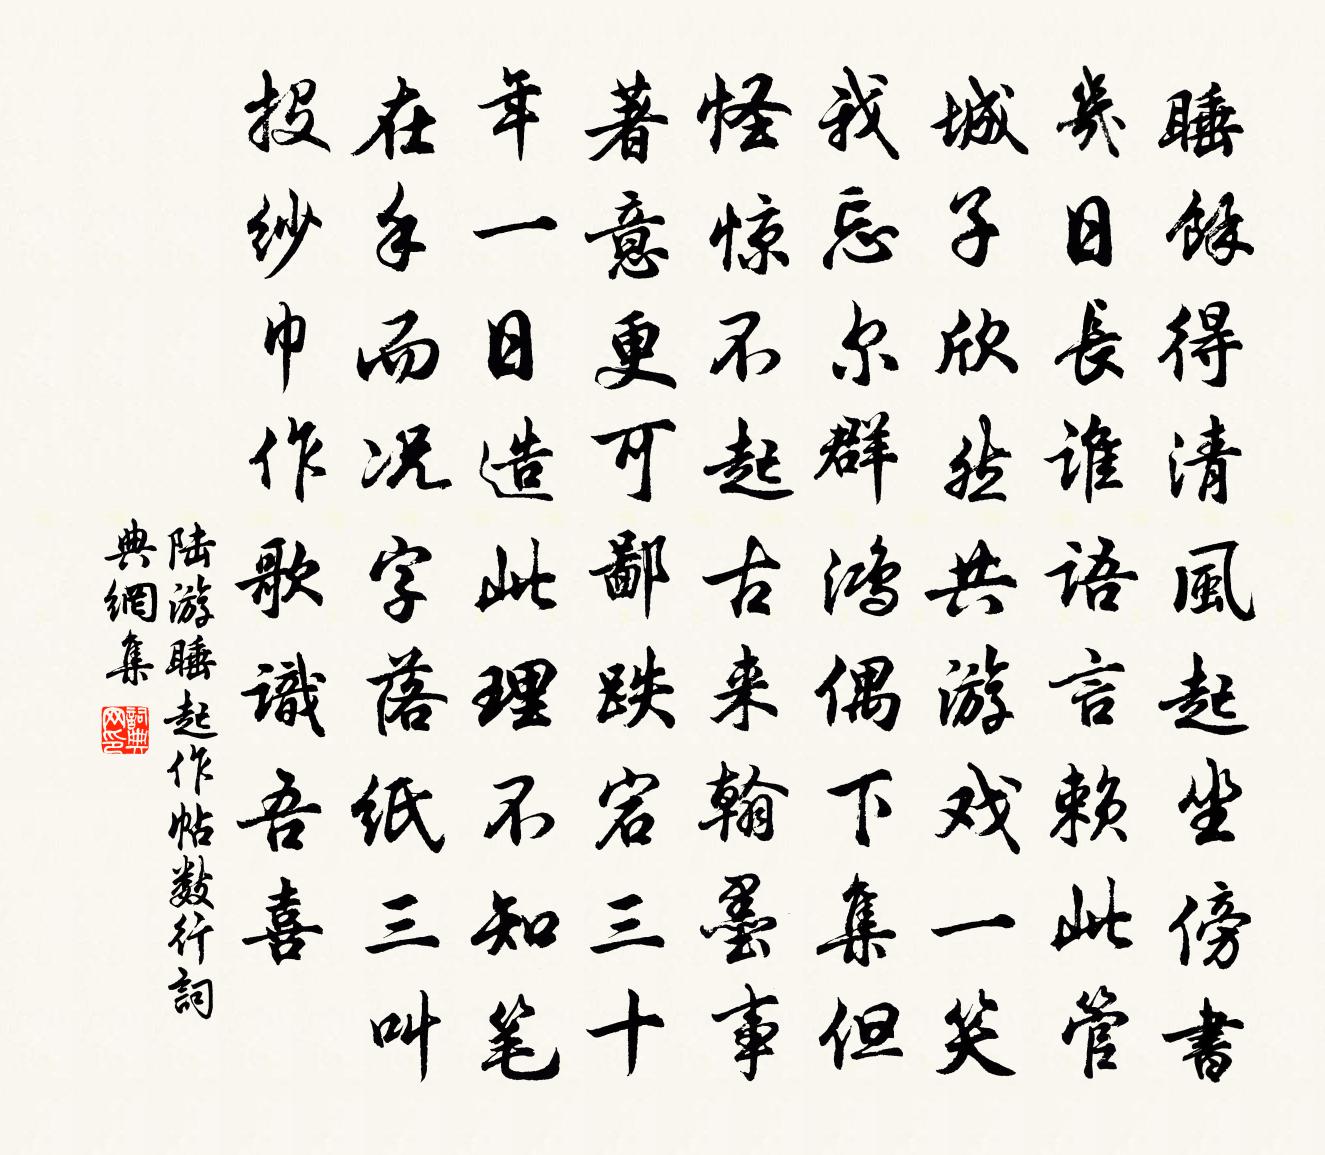 睡餘得清風起坐傍書
幾日長誰語言赖此管
城子欣然共游戏一笑
我忘尔群鸿偶下集但
怪惊不起古来翰墨事
著意更可鄙跌宕三十
年一日造此理不知笔
在手而况字落纸三叫
投纱巾作歌識吾喜
陆游睡起作帖数行詞
典網集
詞典
网印